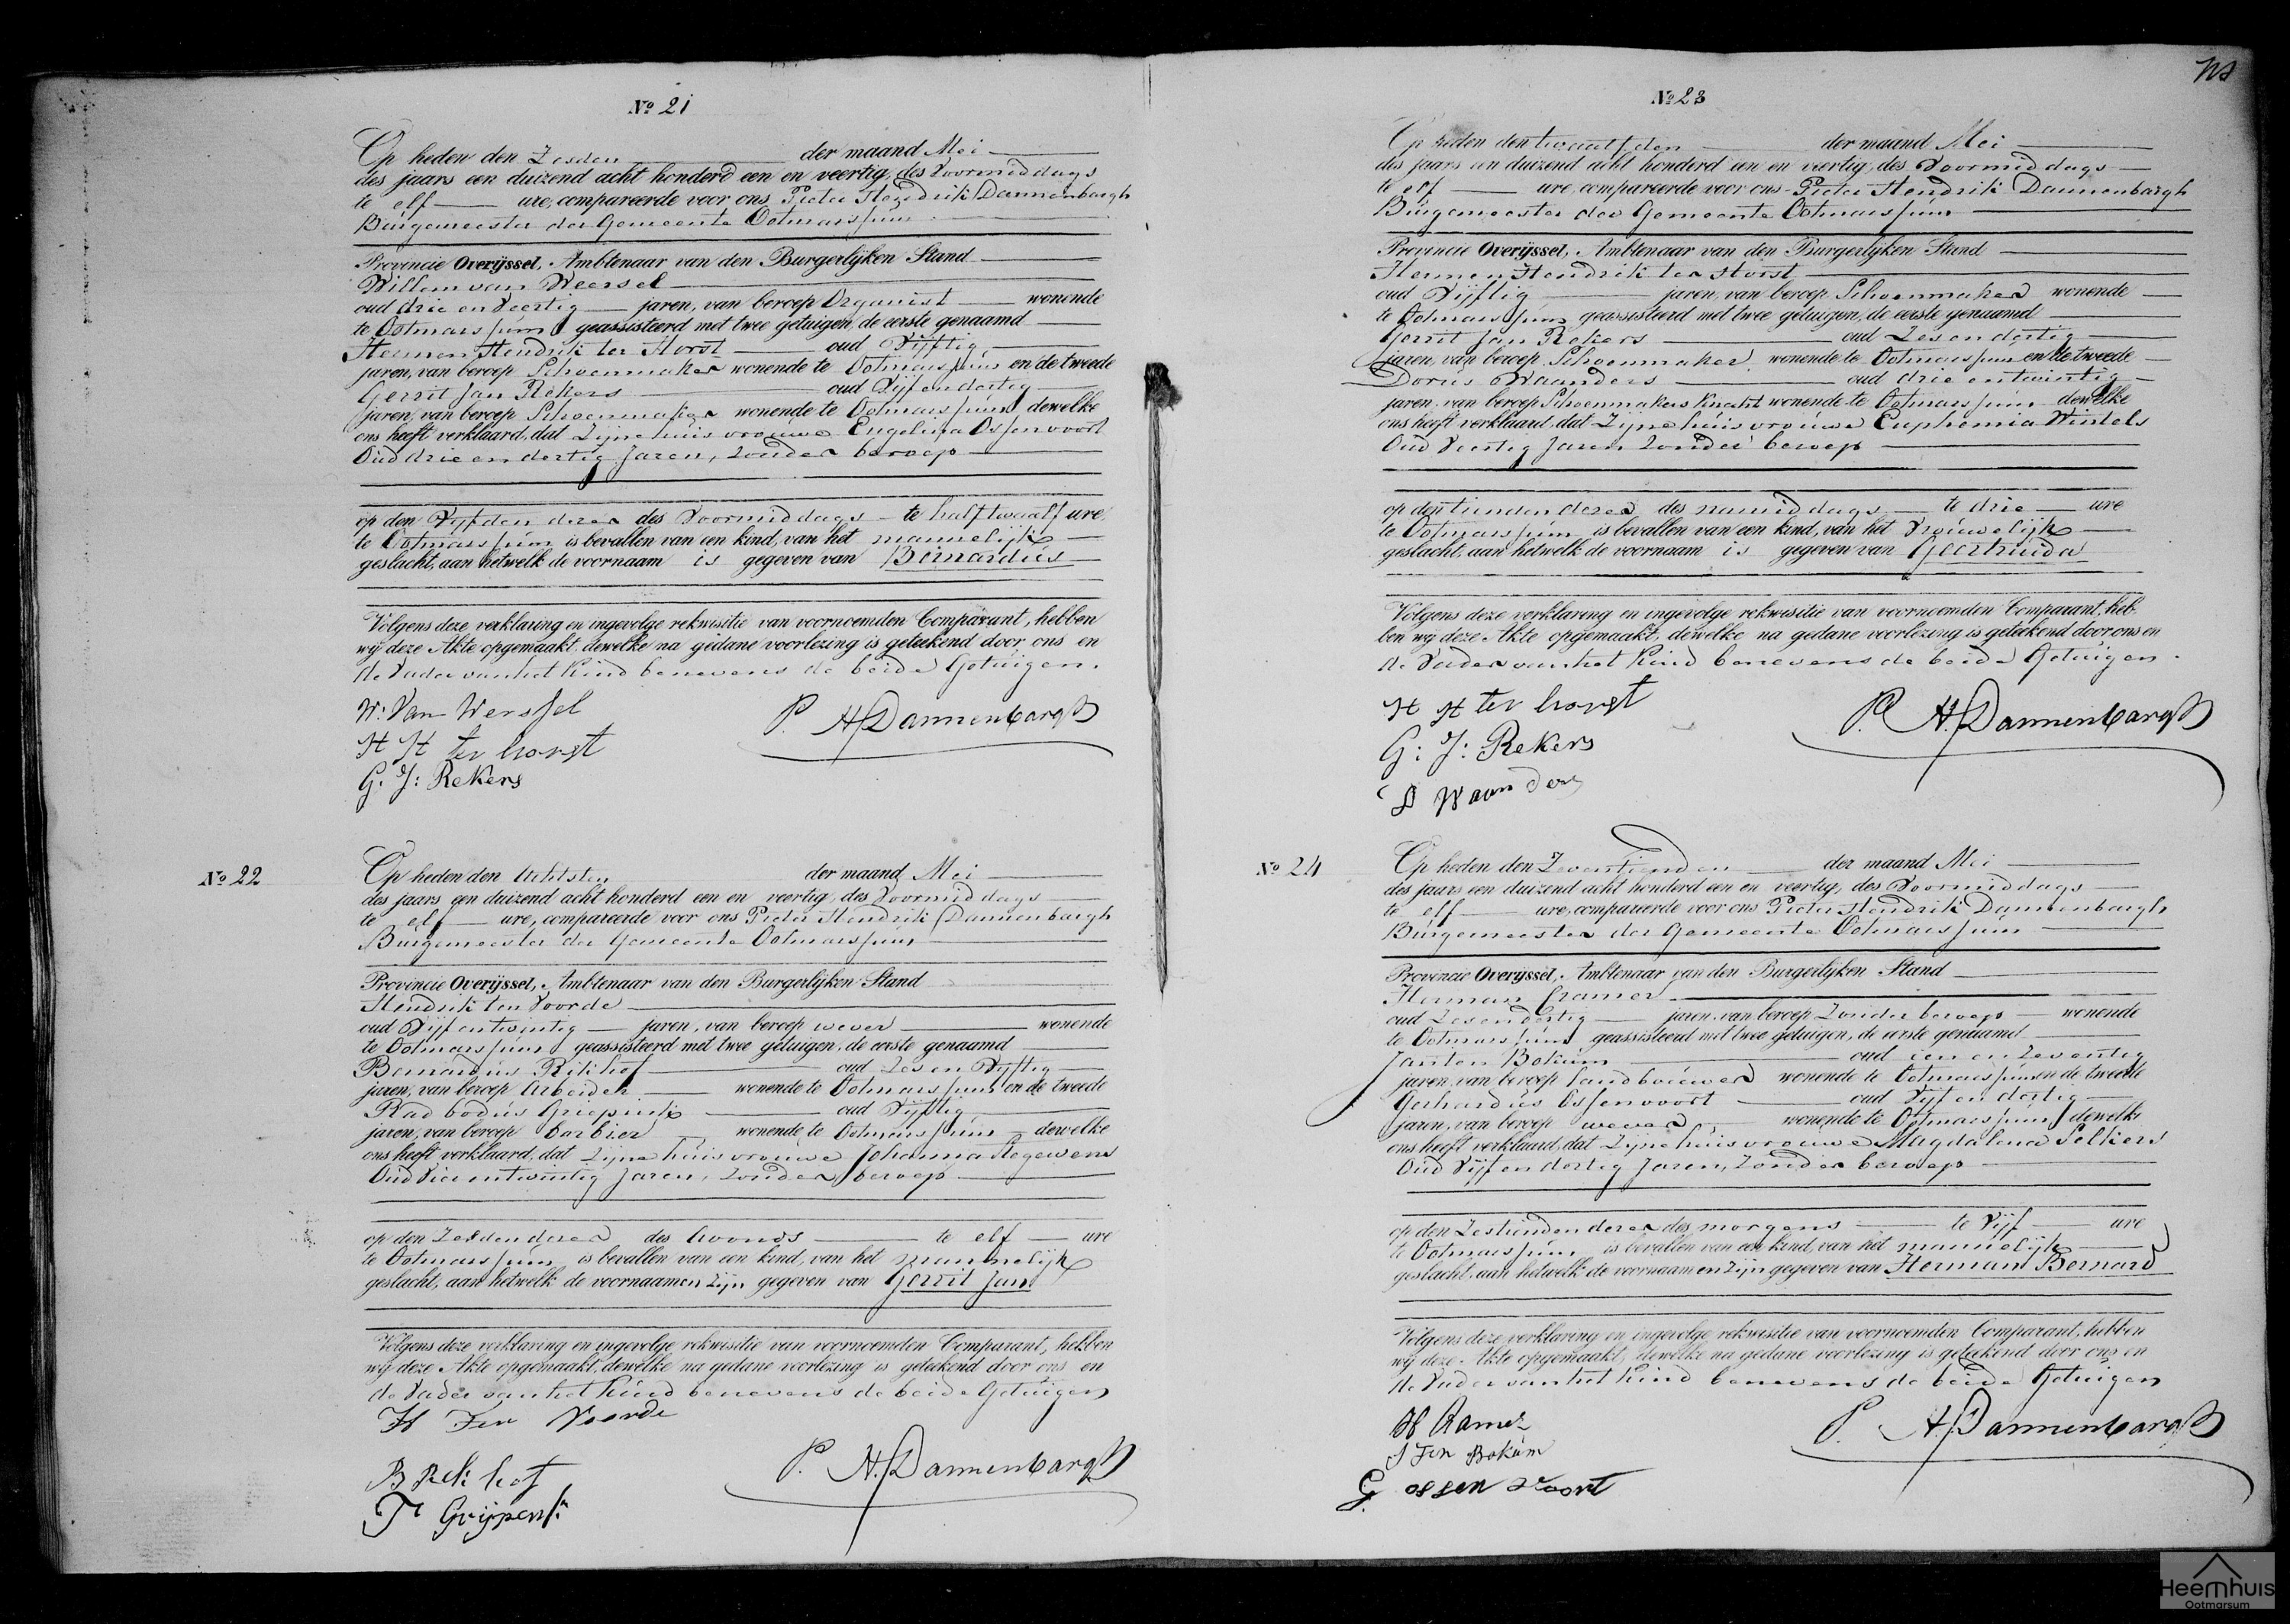 № 21
Op heden den Zesden der maand Mei
des jaars een duizend acht honderd een en veertig, des Voormiddags
te elf ure, compareerde voor ons Pieter Hendrik Dannenbargh
Burgemeester der Gemeente Ootmarssum
Provincie Overijssel, Ambtenaar van den Burgerlijken Stand
Willem van Weersel
oud drie en Veertig jaren, van beroep Organist wonende
te Ootmarssum geassisteerd met twee getuigen, de eerste genaamd
Hermen Hendrik ter Horst oud Vijftig
jaren, van beroep Schoenmaker wonende te Ootmarssum en de tweede
Gerrit Jan Rekers oud Vijfendertig
jaren, van beroep Schoenmaker wonende te Ootmarssum dewelke
ons heeft verklaard, dat Zijne huisvrouwe Engelina Ossenvoort
Oud drie en dertig Jaren, zonder beroep
op den Vijfden dezer des Voormiddags te half twaalf ure
te Ootmarssum is bevallen van een kind, van het mannelijk
geslacht, aan hetwelk de voornaam is gegeven van Bernardus
Volgens deze verklaring en ingevolge rekwisitie van voornoemden Comparant, hebben
wij deze Akte opgemaakt, dewelke na gedane voorlezing is geteekend door ons en
de Vader van het Kind benevens de beide Getuigen.
W: Van Werssel
P. H. Dannenbargh
H H ter horst
G. J: Rekers
№ 22
Op heden den Achtsten der maand Mei
des jaars een duizend acht honderd een en veertig, des Voormiddags
te elf ure, compareerde voor ons Pieter Hendrik Dannenbargh
Burgemeester der Gemeente Ootmarssum
Provincie Overijssel, Ambtenaar van den Burgerlijken Stand
Hendrik ten Voorde
oud Vijf en twintig jaren, van beroep wever wonende
te Ootmarssum geassisteerd met twee getuigen, de eerste genaamd
Bernardus Rikhof oud Zes en Vijftig
jaren, van beroep Arbeider wonende te Ootmarssum en de tweede
Radbodus Griepink oud Vijftig
jaren, van beroep barbier wonende te Ootmarssum dewelke
ons heeft verklaard, dat Zijne huisvrouwe Johanna Hegewens
Oud Vier en twintig Jaren, zonder beroep
op den Zesden dezer des Avonds te elf ure
te Ootmarssum is bevallen van een kind, van het mannelijk
geslacht, aan hetwelk de voornaamen zijn gegeven van Gerrit Jan
Volgens deze verklaring en ingevolge rekwisitie van voornoemden Comparant, hebben
wij deze Akte opgemaakt, dewelke na gedane voorlezing is geteekend door ons en
de Vader van het Kind benevens de beide Getuigen
H Ten Voorde
P. H. Dannenbargh
B Rek hof
№ 23
Op heden den twaalfden der maand Mei
des jaars een duizend acht honderd een en veertig, des Voormiddags
te elf ure, compareerde voor ons Pieter Hendrik Dannenbargh
Burgemeester der Gemeente Ootmarssum
Provincie Overijssel, Ambtenaar van den Burgerlijken Stand
Hermen Hendrik ter Horst
oud Vijftig jaren, van beroep Schoenmaker wonende
te Ootmarssum geassisteerd met twee getuigen, de eerste genaamd
Gerrit Jan Rekers oud Zes en dertig
jaren, van beroep Schoenmaker wonende te Ootmarssum en de tweede
Dorus Waanders oud drie en twintig
jaren, van beroep Schoenmakers Knecht wonende te Ootmarssum dewelke
ons heeft verklaard, dat Zijne huisvrouwe Euphemia Wintels
Oud Veertig Jaren zonder beroep
op den tienden dezer des namiddags te drie ure
te Ootmarssum is bevallen van een kind, van het Vrouwelijk
geslacht, aan hetwelk de voornaam is gegeven van Geertruida
Volgens deze verklaring en ingevolge rekwisitie van voornoemden Comparant, heb-
ben wij deze Akte opgemaakt, dewelke na gedane voorlezing is geteekend door ons en
de Vader van het Kind benevens de beide Getuigen.
H H ter horst
P. H. Dannenbargh
G: J: Rekers
D Waanders
№ 24
Op heden den Zeventienden der maand Mei
des jaars een duizend acht honderd een en veertig, des Voormiddags
te elf ure, compareerde voor ons Pieter Hendrik Dannenbargh
Burgemeester der Gemeente Ootmarssum
Provincie Overijssel, Ambtenaar van den Burgerlijken Stand
Herman Cramer
oud Zes en dertig jaren, van beroep Zonder beroep wonende
te Ootmarssum geassisteerd met twee getuigen, de eerste genaamd
Jan ten Bokum oud een en Zeventig
jaren, van beroep Landbouwer wonende te Ootmarssum en de tweede
Gerhardus Ossenvoort oud Vijf en dertig
jaren, van beroep wever wonende te Ootmarssum dewelke
ons heeft verklaard, dat Zijne huisvrouwe Magdalena Selkers
Oud Vijf en dertig Jaren, Zonder beroep
op den Zestienden dezer des morgens te Vijf ure
te Ootmarssum is bevallen van een kind, van het mannelijk
geslacht, aan hetwelk de voornaamen zijn gegeven van Herman Bernard
Volgens deze verklaring en ingevolge rekwisitie van voornoemden Comparant, hebben
wij deze Akte opgemaakt, dewelke na gedane voorlezing is geteekend door ons en
de Vader van het Kind benevens de beide Getuigen
P. H. Dannenbargh
J Ten Bokum
G. ossen voort
Heemhuis
Ootmarsum